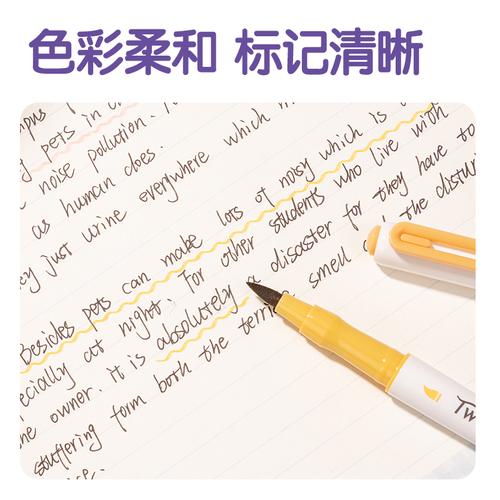 色彩柔和 标记清晰
pets in
noise pollution.
as human does.
just urine everywhere which
Besides pets can make lots of noisy which is
at night. For other students who live with
the owner. it is absolutely a disaster for they have to
suffering form both the smell the
Tw